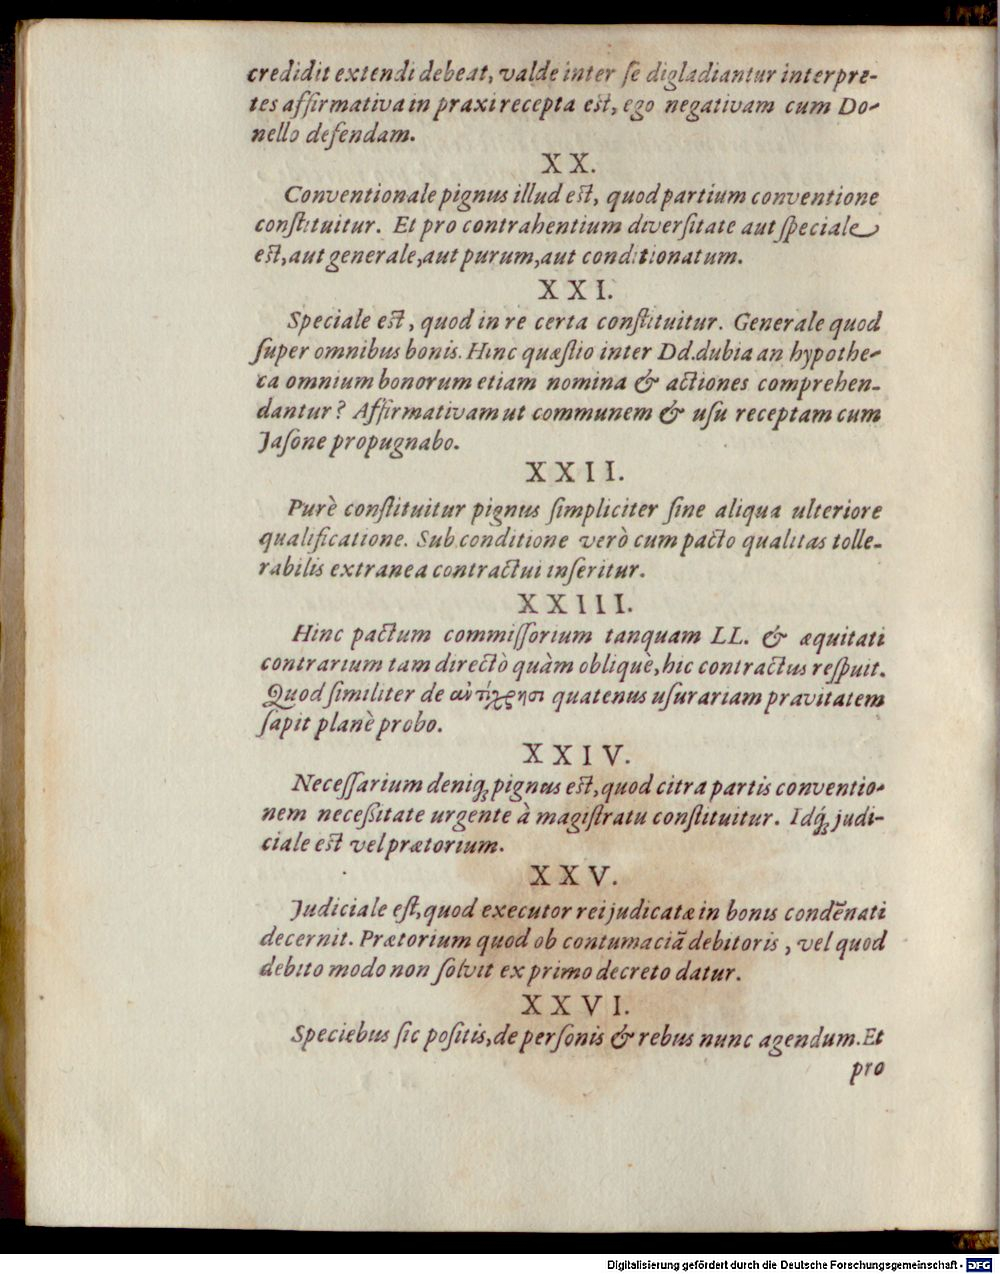 credidit extendi debeat, valde inter se digladiantur interpre-
tes affirmativa in praxi recepta est, ego negativam cum Do-
nello defendam.
XX.
Conventionale pignus illud est, quod partium conventione
constituitur. Et pro contrahentium diversitate aut speciale
est, aut generale, aut purum, aut conditionatum.
XXI.
Speciale est, quod in re certa constituitur. Generale quod
super omnibus bonis. Hinc quæstio inter Dd. dubia an hypothe-
ca omnium bonorum etiam nomina & actiones comprehen-
dantur? Affirmativam ut communem & usu receptam cum
Jasone propugnabo.
XXII.
Purè constituitur pignus simpliciter sine aliqua ulteriore
qualificatione. Sub conditione verò cum pacto qualitas tolle-
rabilis extranea contractui inseritur.
XXIII.
Hinc pactum commissorium tanquam LL. & æquitati
contrarium tam directò quàm obliquè, hic contractus respuit.
Quod similiter de ἀντίχρησι quatenus usurariam pravitatem
sapit planè probo.
XXIV.
Necessarium deniq; pignus est, quod citra partis conventio-
nem necessitate urgente à magistratu constituitur. Idq́; judi-
ciale est vel prætorium.
XXV.
Judiciale est, quod executor rei judicatæ in bonis condẽnati
decernit. Prætorium quod ob contumaciã debitoris, vel quod
debito modo non solvit ex primo decreto datur.
XXVI.
Speciebus sic positis, de personis & rebus nunc agendum. Et
pro
Digitalisierung gefördert durch die Deutsche Forschungsgemeinschaft - DFG